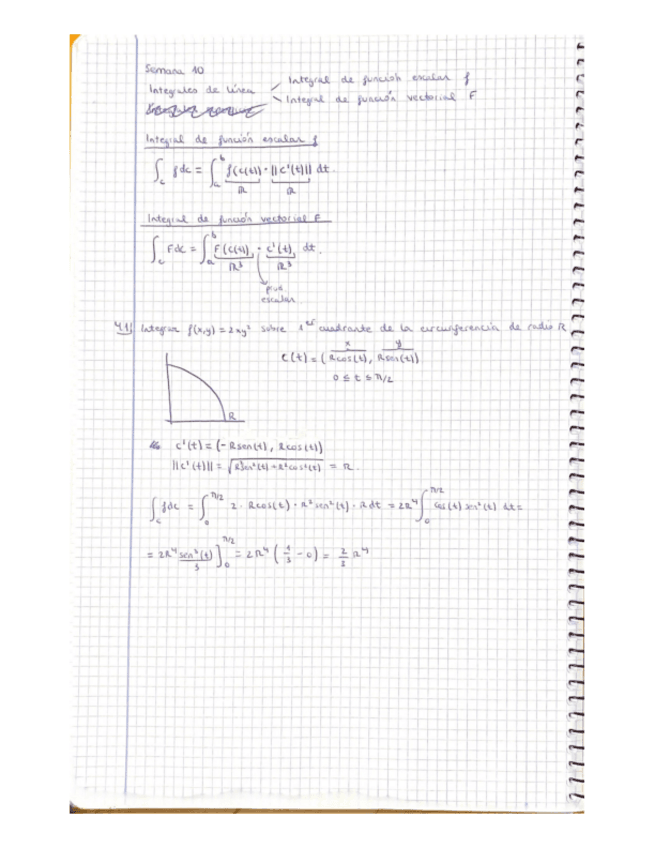 Semana 10
Integrales de línea
Integral de función escalar f
Integral de función vectorial F
Integral de función escalar f
∫_c f dc = ∫_a^b f(c(t)) · ||c'(t)|| dt.
ℝ ℝ
Integral de función vectorial F
∫_c F dc = ∫_a^b F(c(t)) · c'(t) dt.
ℝ³ ℝ³
prod
escalar
4.1) Integrar f(x,y) = 2xy² sobre 1er cuadrante de la circunferencia de radio R
x y
c(t) = (Rcos(t), Rsen(t))
0 ≤ t ≤ π/2
R
c'(t) = (-Rsen(t), Rcos(t))
||c'(t)|| = √(R²sen²(t) + R²cos²(t)) = R.
∫_c f dc = ∫_0^{π/2} 2 · Rcos(t) · R² sen²(t) · R dt = 2R⁴ ∫_0^{π/2} cos(t) sen²(t) dt =
= 2R⁴ sen³(t)/3 ]_0^{π/2} = 2R⁴ (1/3 - 0) = 2/3 R⁴